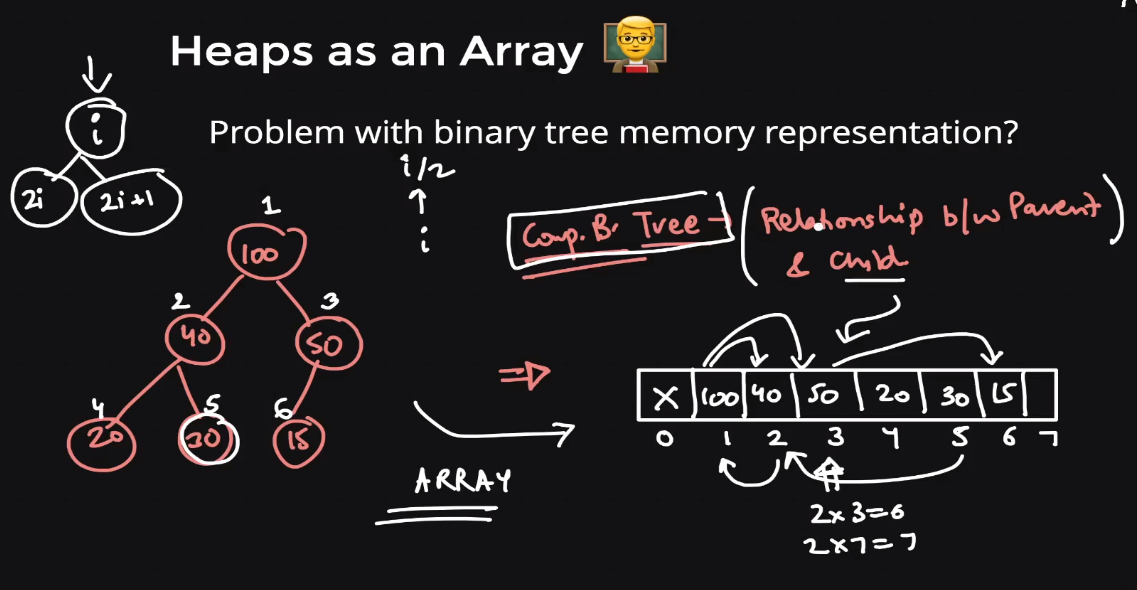 Heaps as an Array
Problem with binary tree memory representation?
i
2i 2i+1
i/2
i
Comp. B. Tree → (Relationship b/w Parent
& Child)
1
100
2 3
40 50
4 5 6
20 30 15
⇒
ARRAY
X 100 40 50 20 30 15
0 1 2 3 4 5 6 7
2x3=6
2x7=7